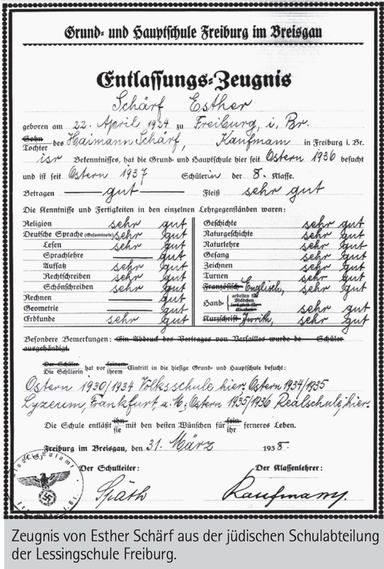 Grund- und Hauptschule Freiburg im Breisgau
Entlassungs-Zeugnis
Schärf Esther
geboren am 22. April 1924 zu Freiburg, i. Br.
Sohn
Tochter des Haimann Schärf, Kaufmann in Freiburg i. Br.
isr Bekenntnisses, hat die Grund- und Hauptschule hier seit Ostern 1936 besucht
und ist seit Ostern 1937 Schülerin der 8. Klasse.
Betragen gut Fleiß sehr gut
Die Kenntnisse und Fertigkeiten in den einzelnen Lehrgegenständen waren:
Religion sehr gut Geschichte sehr gut
Deutsche Sprache sehr gut Naturgeschichte sehr gut
Lesen sehr gut Naturlehre sehr gut
Sprachlehre sehr gut Gesang sehr gut
Aufsatz sehr gut Zeichnen sehr gut
Rechtschreiben sehr gut Turnen sehr gut
Schönschreiben sehr gut Französisch Englisch, sehr gut
Rechnen sehr gut Hand- arbeiten für Mädchen sehr gut
Geometrie sehr gut
Erdkunde sehr gut Kurzschrift Iwrith, sehr gut
Besondere Bemerkungen: Ein Abdruck des Vertrages von Versailles wurde de Schüler
ausgehändigt.
Der Schüler
Die Schülerin hat vor seinem ihrem Eintritt in die hiesige Grund- und Hauptschule besucht:
Ostern 1930/1934 Volksschule hier. Ostern 1934/1935
Lyzeum, Frankfurt a. M., Ostern 1935/1936 Realschule, hier.
Die Schule entläßt ihn sie mit den besten Wünschen für sein ihr ferneres Leben.
Freiburg im Breisgau, den 31. März 1938.
Der Schulleiter: Der Klassenlehrer:
Späth Kaufmann
Zeugnis von Esther Schärf aus der jüdischen Schulabteilung
der Lessingschule Freiburg.